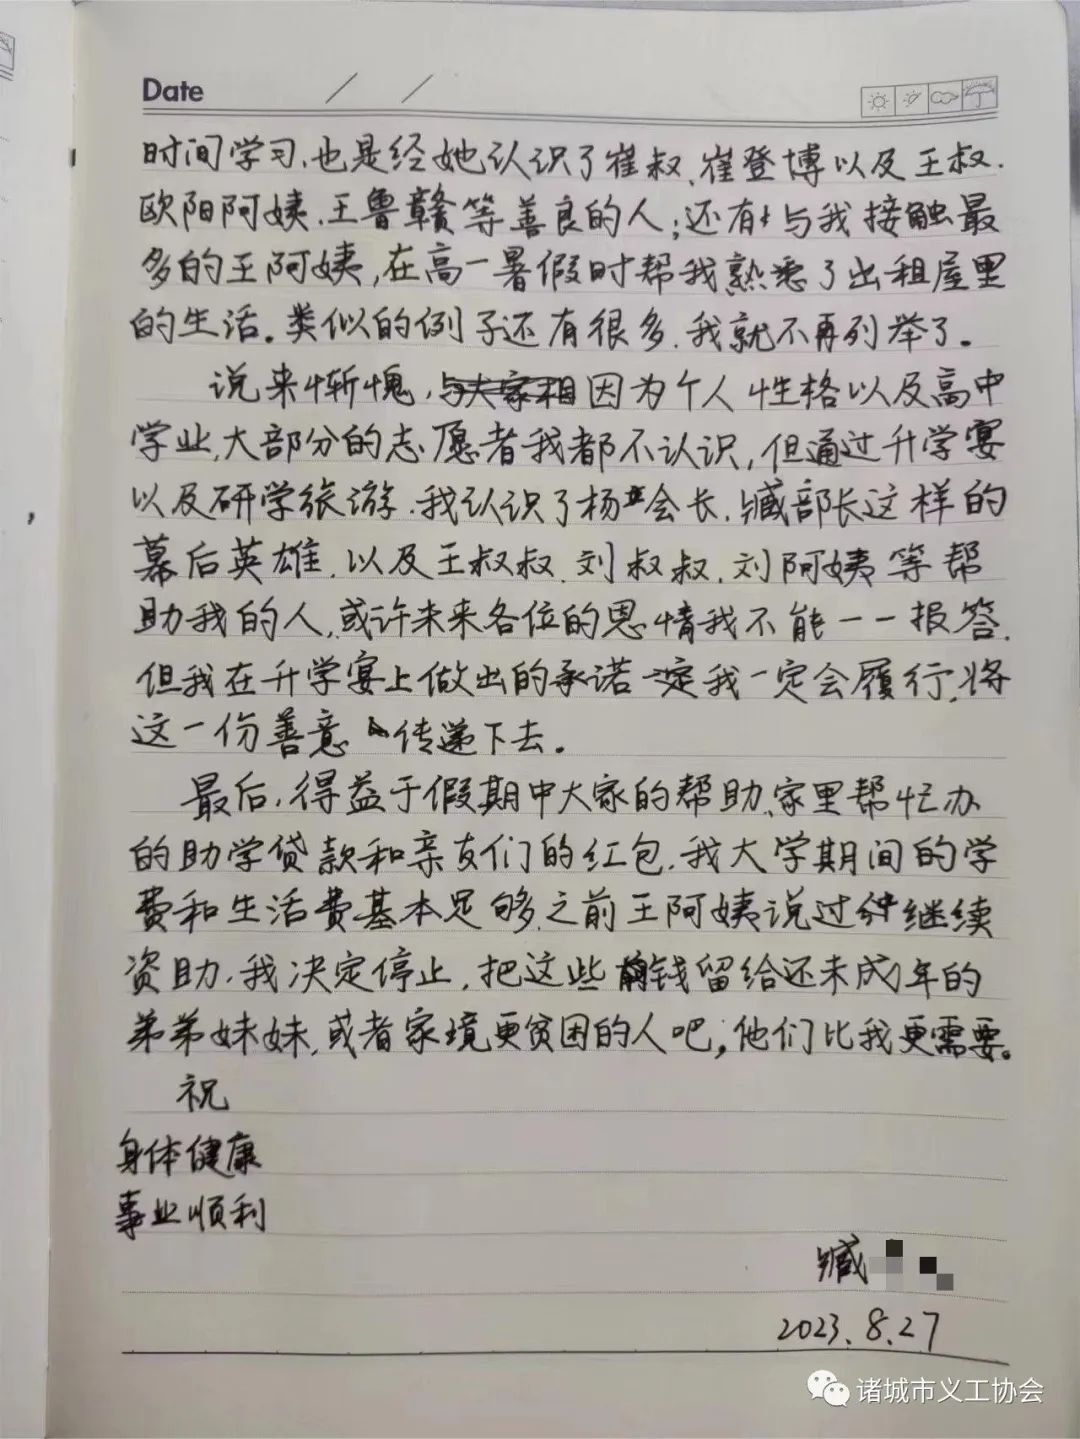 Date / /
时间学习、也是经她认识了崔叔、崔登博以及王叔、
欧阳阿姨、王鲁赣等善良的人；还有与我接触最
多的王阿姨，在高一暑假时帮我熟悉了出租屋里
的生活。类似的例子还有很多、我就不再列举了。
说来惭愧，与大家相因为个人性格以及高中
学业，大部分的志愿者我都不认识，但通过升学宴
以及研学旅游、我认识了杨会长、臧部长这样的
幕后英雄、以及王叔叔、刘叔叔、刘阿姨等帮
助我的人，或许未来各位的恩情我不能一一报答、
但我在升学宴上做出的承诺 定我一定会履行，将
这一份善意 传递下去。
最后，得益于假期中大家的帮助、家里帮忙办
的助学贷款和亲友们的红包、我大学期间的学
费和生活费基本足够，之前王阿姨说过 继续
资助、我决定停止，把这些 钱留给还未成年的
弟弟妹妹，或者家境更贫困的人吧，他们比我更需要。
祝
身体健康
事业顺利
臧
2023.8.27
诸城市义工协会